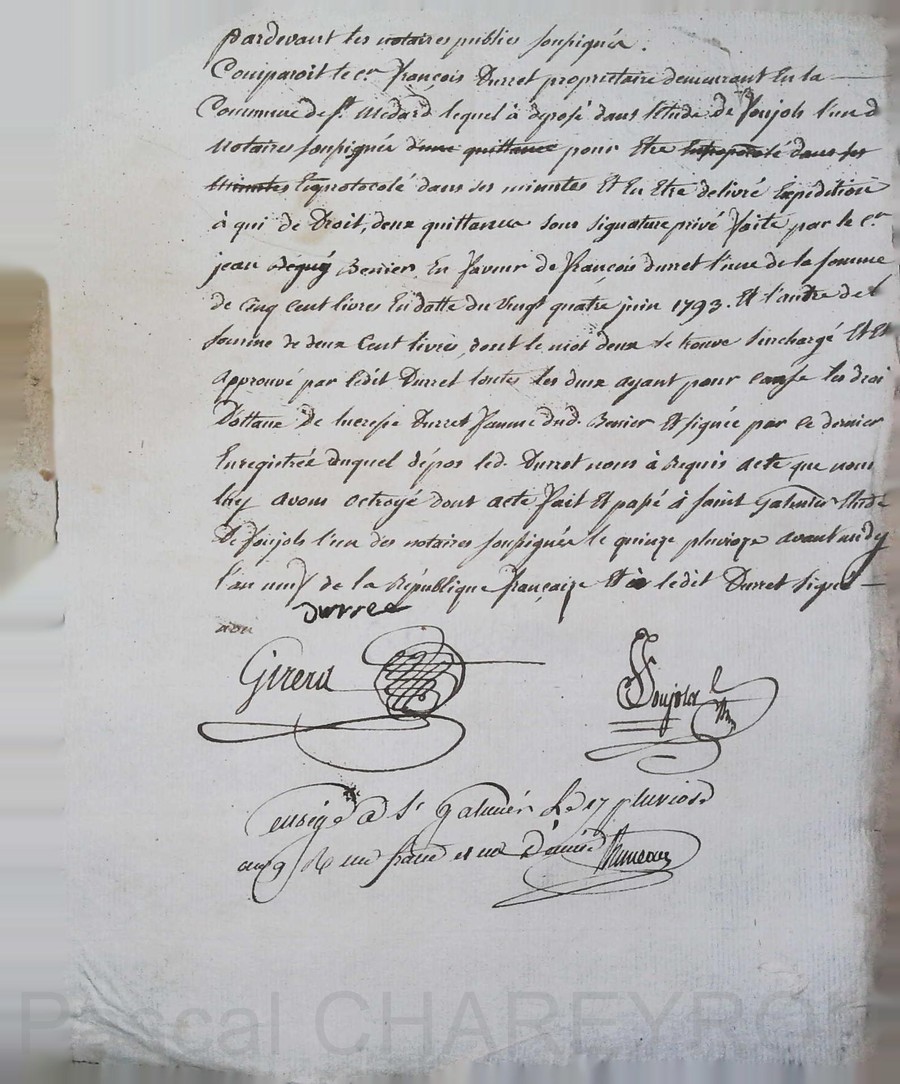 pardevant les notaires publics soussignés.
Comparoit le c.en françois Durret proprietaire demeurant En la
Commune de s.t Médard lequel à déposé dans l'Etude de Poujols l'un d
Notaires soussignés d'une quittance pour Etre Enprotocolé dans ses
Minutes Enprotocolé dans ses minutes Et En Etre delivré Expédition
à qui de Droit, deux quittances sous signature privé faite par le c.en
jean Benier En faveur de françois durret l'une de la somme
de cinq cent livres En datte du vingt quatre juin 1793. Et l'autre de l
somme de deux Cent livres, dont le mot deux se trouve surchargé Et Et
approuvé par ledit Durret toutes les deux ayant pour cause les droi
de Durret femme dud. Benier Et signée par ce dernier
Enregistrée duquel dépos led. Durret nous à Requis acte que nous
luy avons octroyé dont acte fait Et passé à saint Galmier Etude
de Poujols l'un des notaires soussignés le quinze pluvioze avant midy
l'an neuf de la République française Et à ledit Durret signé
durret
Girerd
Poujols
enregé a St Galmier Le 17 pluviose
an 9 R un franc et un Décime